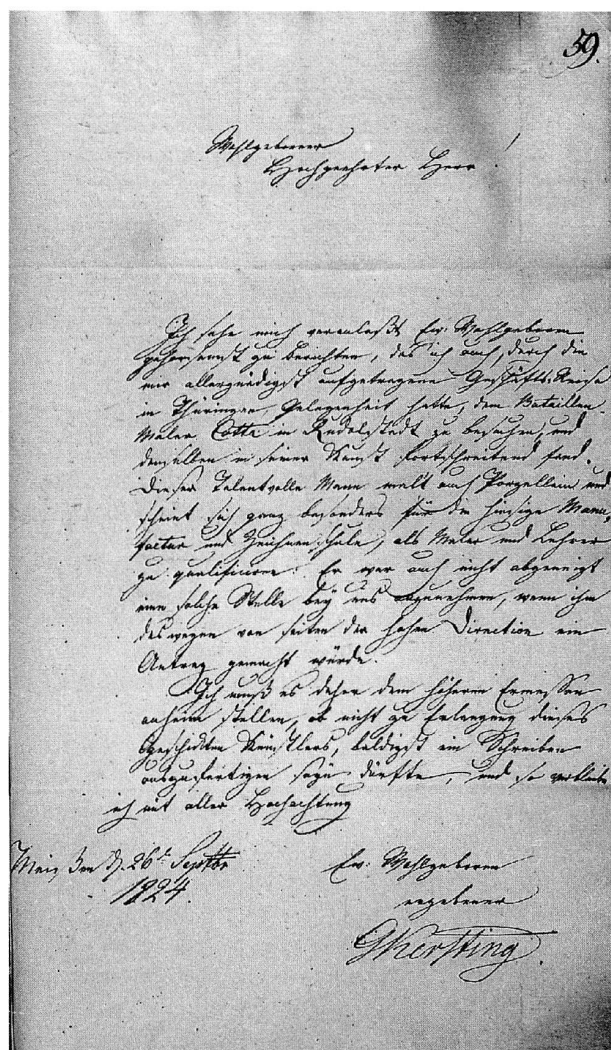 59.
Wohlgeborner
Hochgeehrter Herr!
Ich sehe mich veranlaßt Ew: Wohlgeboren
gehorsamst zu berichten, das ich auch, durch die
mir allergnädigst aufgetragene Geschäfts-Reise
in Thüringen Gelegenheit hatte, dem Bataillen
Maler Cotta in Rudolstadt zu besuchen, und
denselben in seiner Kunst fortschreitend fand.
Dieser Talentvolle Mann malt auf Porzellein und
scheint sich ganz besonders für die hiesige Manu
factur und Zeichnenschule, als Maler und Lehrer
zu qualificiren. Er war auch nicht abgeneigt
eine solche Stelle bey uns anzunehmen, wenn ihm
deswegen von seiten der hohen Direction ein
Antrag gemacht würde.
Ich muß es daher dem höherm Ermessen
anheim stellen, ob nicht zu Erlangung dieses
geschickten Künstlers, baldigst ein Schreiben
auszufertigen seyn dürfte, und so verbleibe
ich mit aller Hochachtung
Meißen d. 26t Septbr
1824.
Ew: Wohlgeboren
ergebener
GKersting.